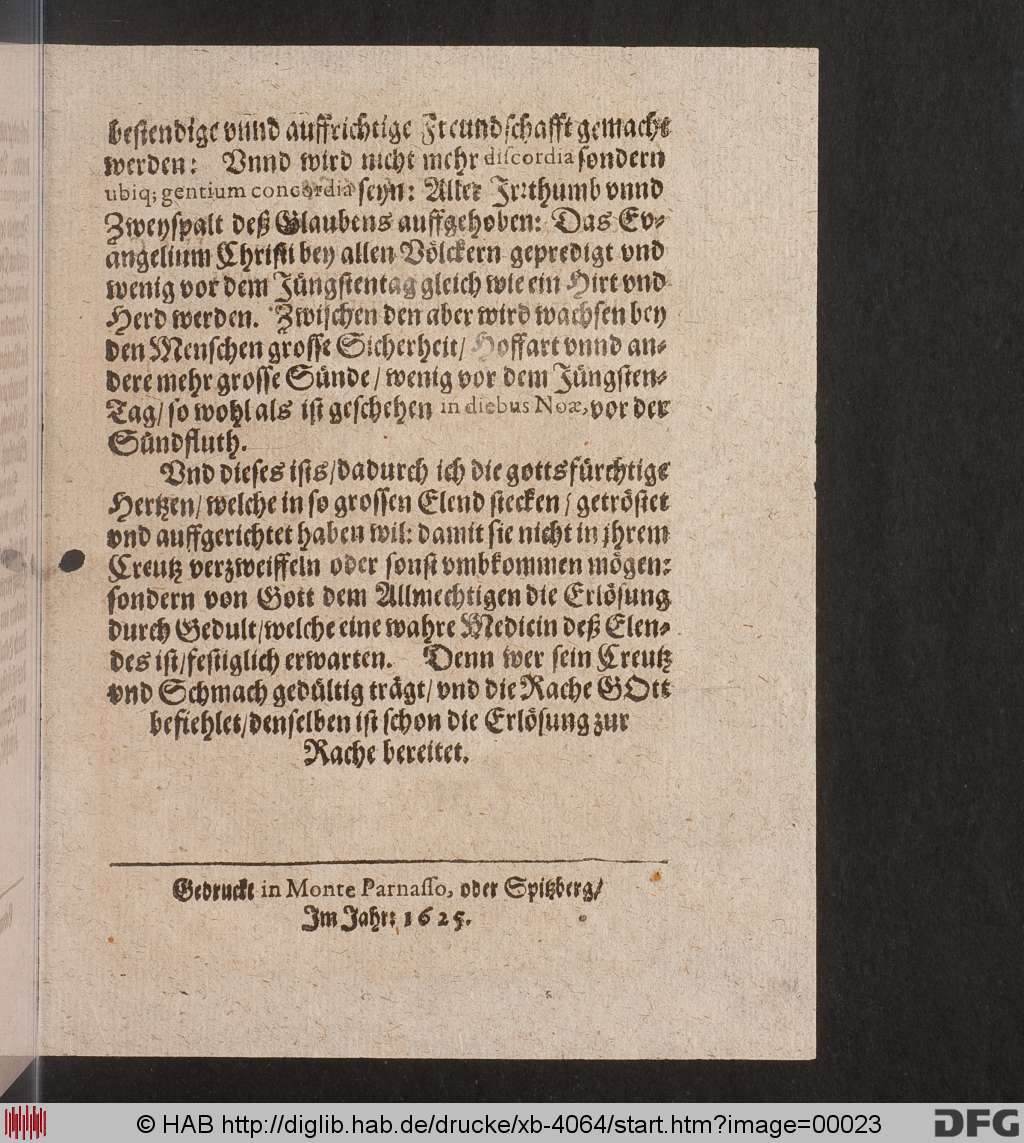 bestendige vnnd auffrichtige Freundschafft gemacht
werden: Vnnd wird nicht mehr discordia sondern
ubiq; gentium concordia seyn: Aller Irrthumb vnnd
Zweyspalt deß Glaubens auffgehoben: Das Ev-
angelium Christi bey allen Völckern gepredigt vnd
wenig vor dem Jüngstentag gleich wie ein Hirt vnd
Herd werden. Zwischen den aber wird wachsen bey
den Menschen grosse Sicherheit/ Hoffart vnnd an-
dere mehr grosse Sünde/ wenig vor dem Jüngsten-
Tag/ so wohl als ist geschehen in diebus Noæ, vor der
Sündfluth.
Vnd dieses ists/ dadurch ich die gottsfürchtige
Hertzen/ welche in so grossen Elend stecken/ getröstet
vnd auffgerichtet haben wil: damit sie nicht in jhrem
Creutz verzweiffeln oder sonst vmbkommen mögen:
sondern von Gott dem Allmechtigen die Erlösung
durch Gedult/ welche eine wahre Medicin deß Elen-
des ist/ festiglich erwarten. Denn wer sein Creutz
vnd Schmach gedültig trägt/ vnd die Rache GOtt
befiehlet/ denselben ist schon die Erlösung zur
Rache bereitet.
Gedruckt in Monte Parnasso, oder Spitzberg/
Im Jahr: 1625.
© HAB http://diglib.hab.de/drucke/xb-4064/start.htm?image=00023
DFG